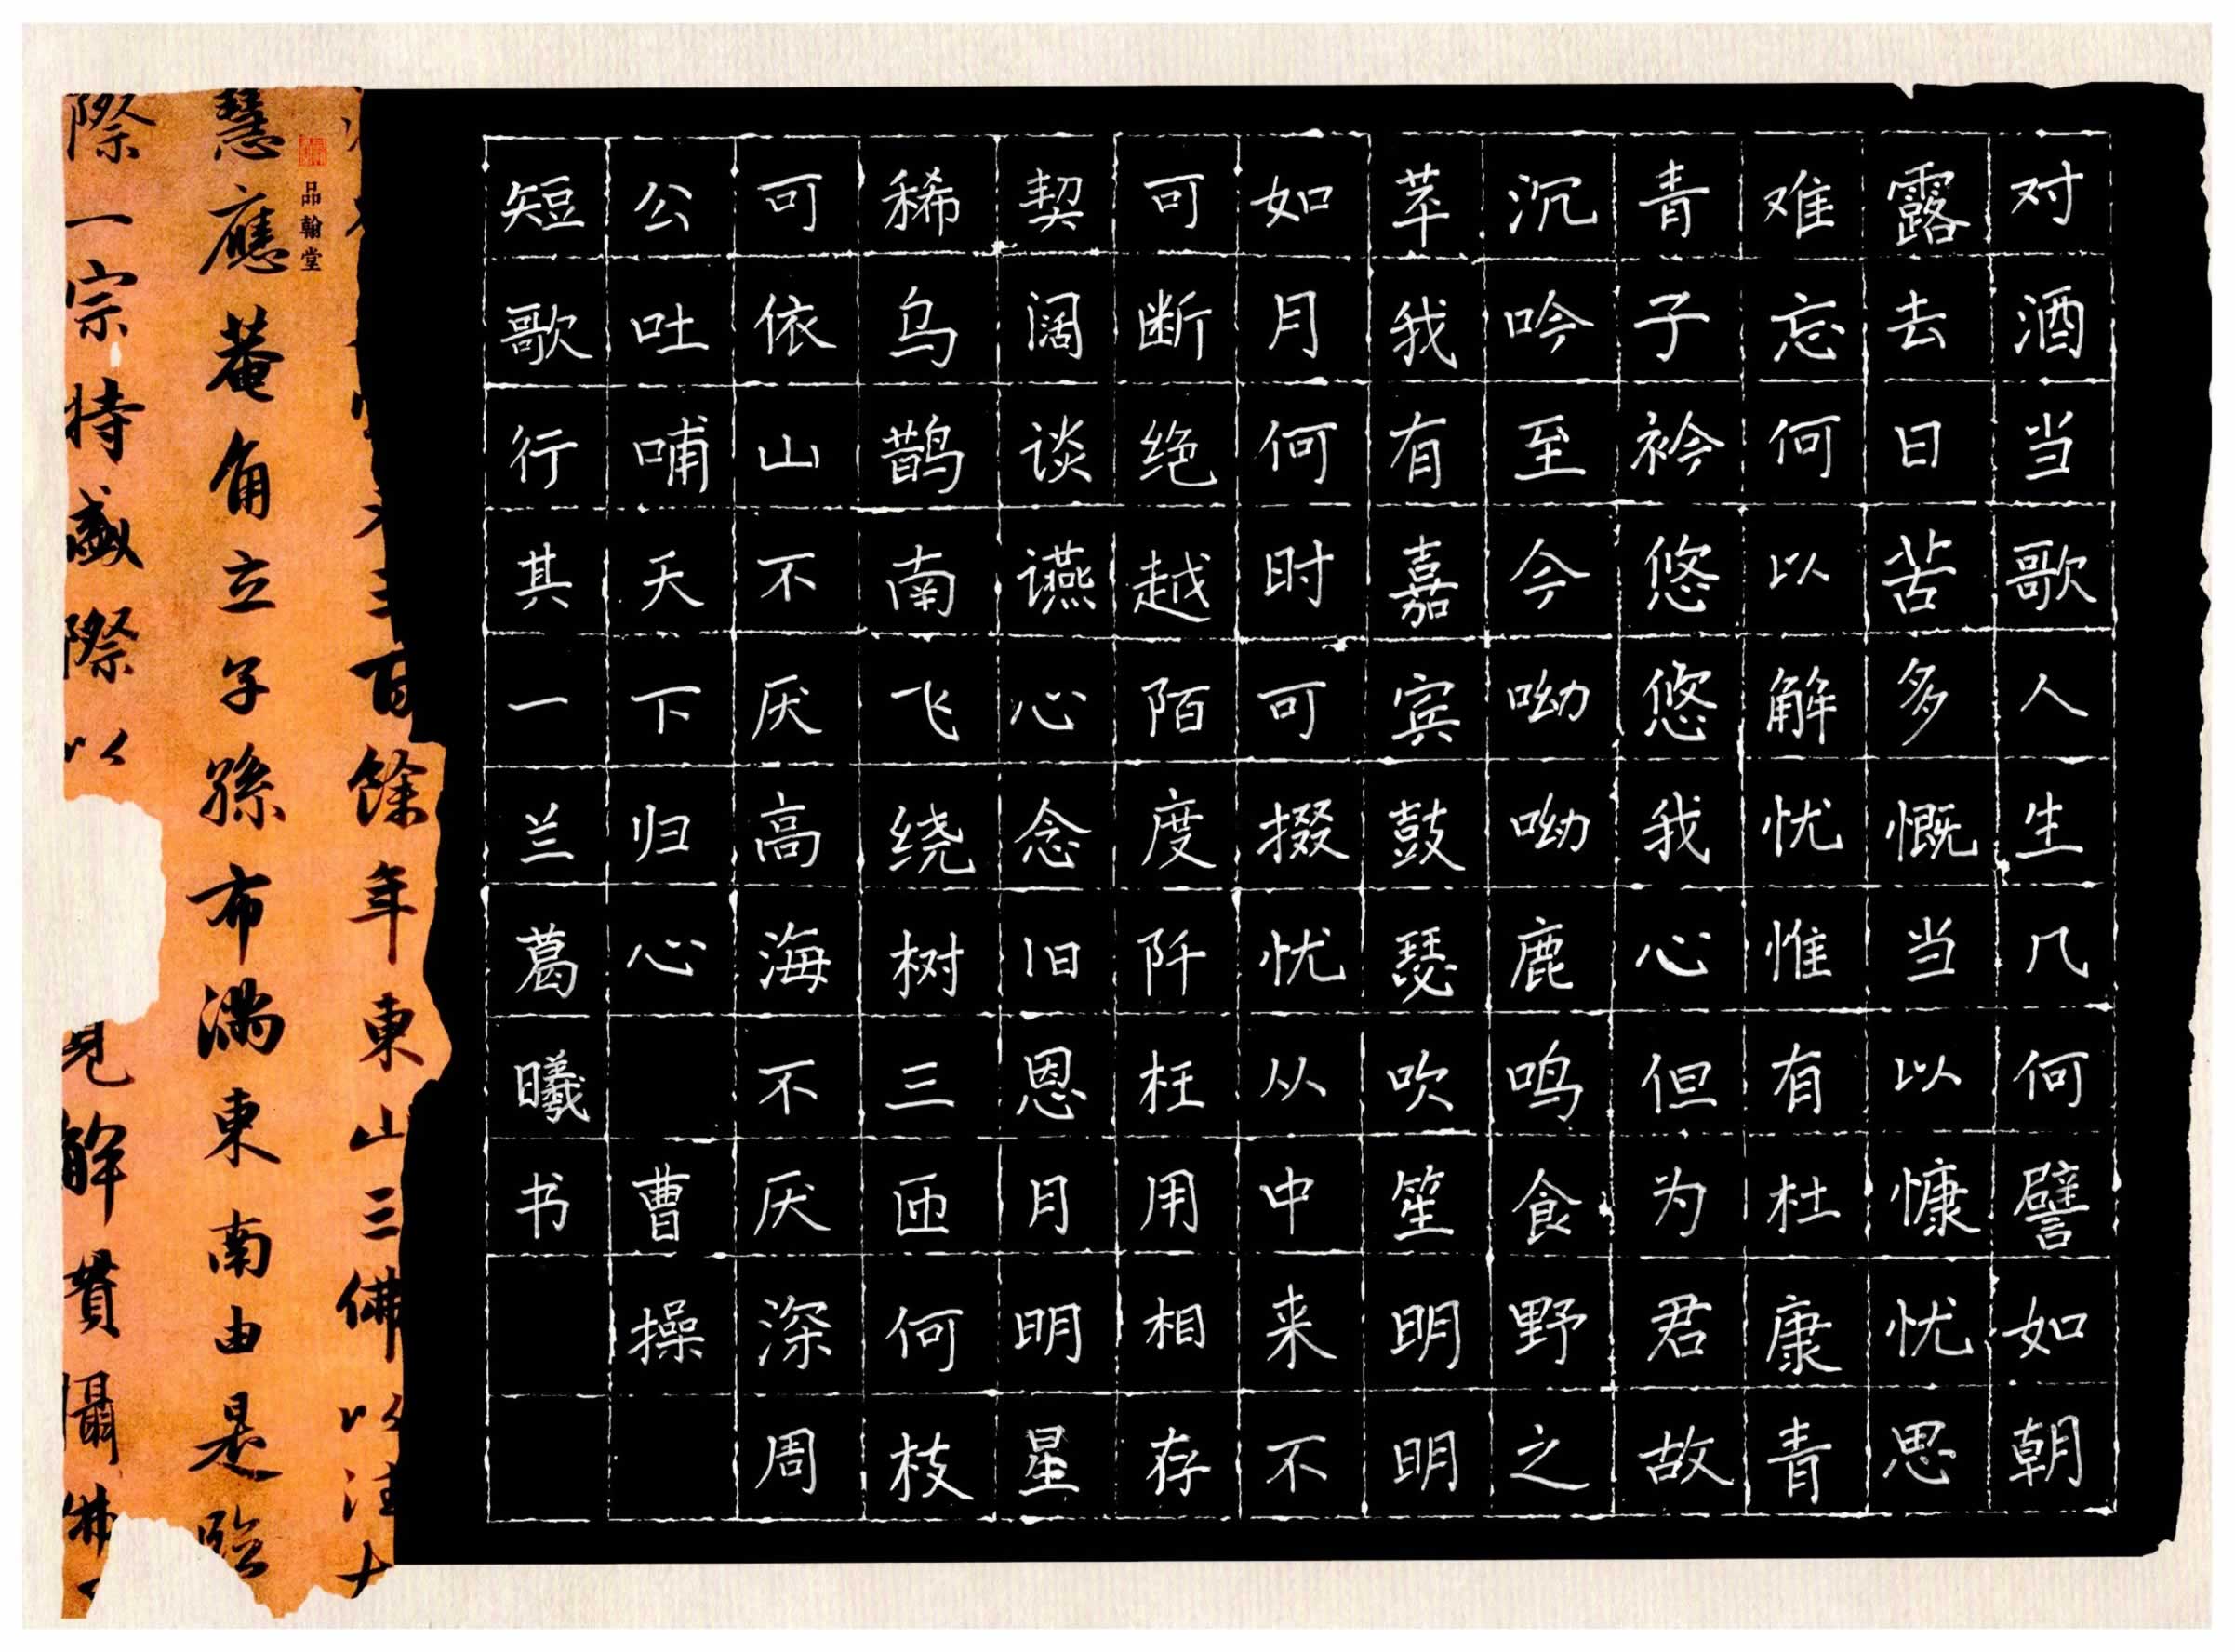 对酒当歌人生几何譬如朝
露去日苦多慨当以慷忧思
难忘何以解忧惟有杜康青
青子衿悠悠我心但为君故
沉吟至今呦呦鹿鸣食野之
苹我有嘉宾鼓瑟吹笙明明
如月何时可掇忧从中来不
可断绝越陌度阡枉用相存
契阔谈䜩心念旧恩月明星
稀乌鹊南飞绕树三匝何枝
可依山不厌高海不厌深周
公吐哺天下归心 曹操
短歌行其一兰葛曦书
百餘年東山三佛以法
品翰堂
慧應菴角立子孫布满東南由是臨
際一宗特盛際以見解貫